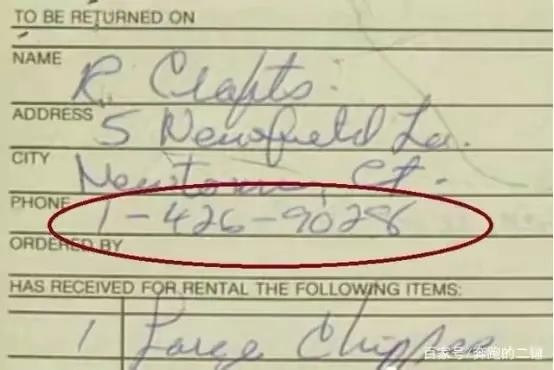 TO BE RETURNED ON
NAME R. Crafts.
ADDRESS 5 Newfield La.
CITY Newtown, Ct.
PHONE 1-426-9028
ORDERED BY
HAS RECEIVED FOR RENTAL THE FOLLOWING ITEMS:
1 Large Chipper
百家号/奔跑的二键